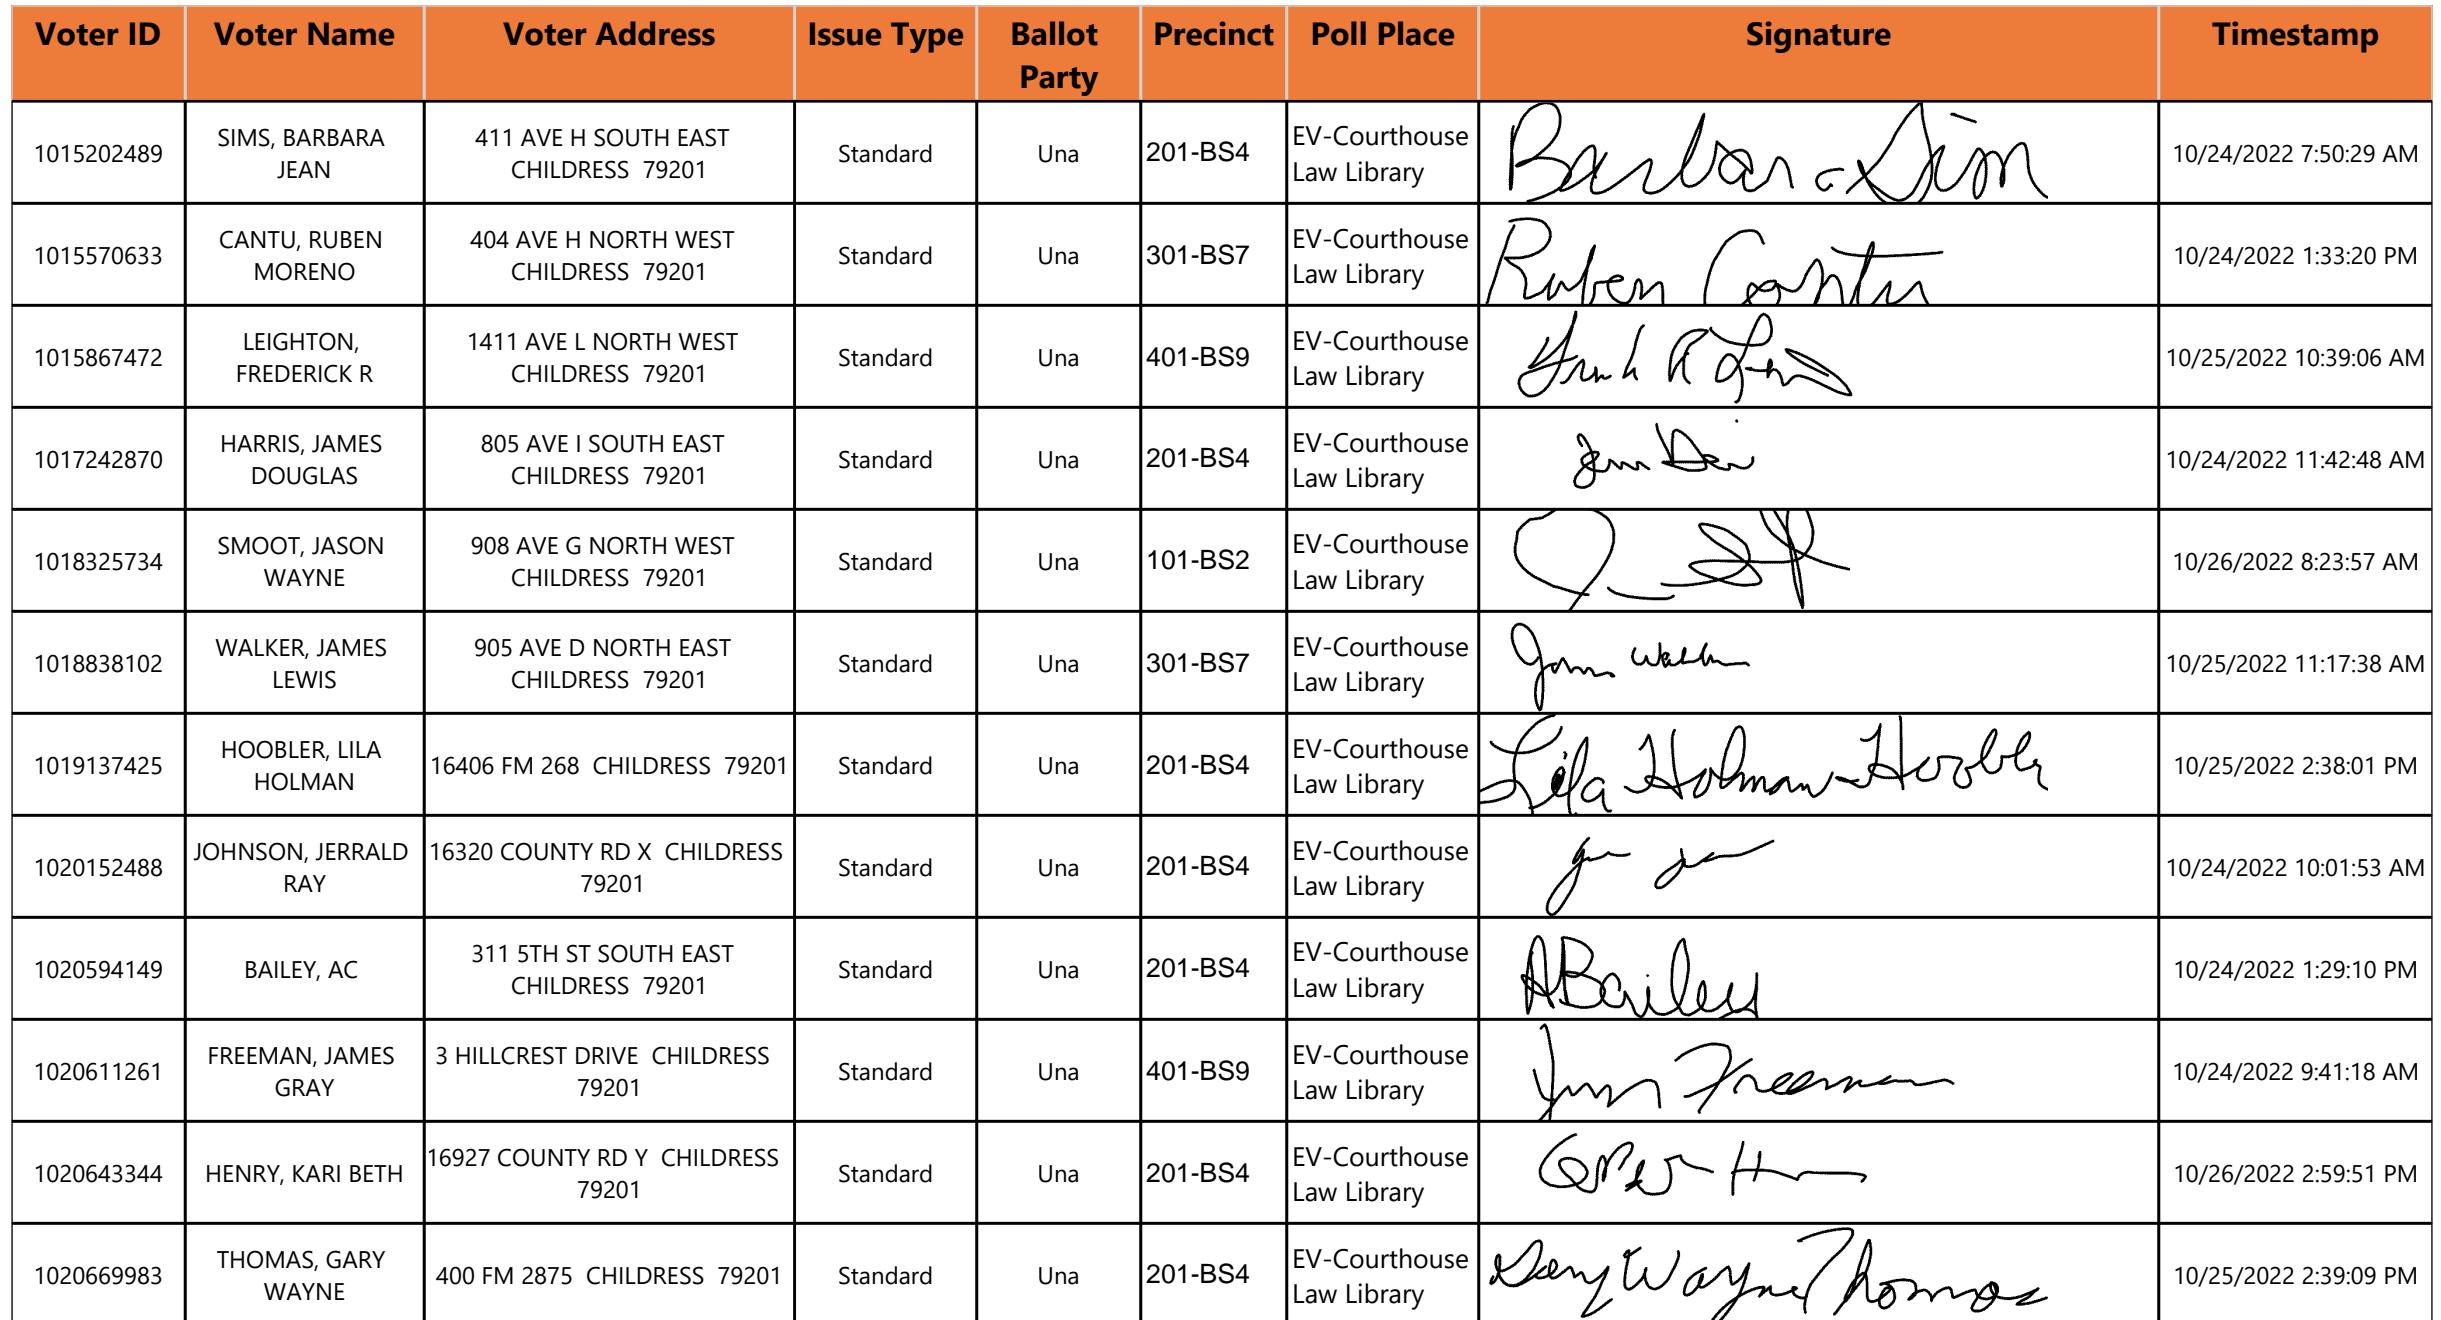 Voter ID Voter Name Voter Address Issue Type Ballot Party Precinct Poll Place Signature Timestamp
1015202489 SIMS, BARBARA JEAN 411 AVE H SOUTH EAST CHILDRESS 79201 Standard Una 201-BS4 EV-Courthouse Law Library Barbara Sim 10/24/2022 7:50:29 AM
1015570633 CANTU, RUBEN MORENO 404 AVE H NORTH WEST CHILDRESS 79201 Standard Una 301-BS7 EV-Courthouse Law Library Ruben Cantu 10/24/2022 1:33:20 PM
1015867472 LEIGHTON, FREDERICK R 1411 AVE L NORTH WEST CHILDRESS 79201 Standard Una 401-BS9 EV-Courthouse Law Library 10/25/2022 10:39:06 AM
1017242870 HARRIS, JAMES DOUGLAS 805 AVE I SOUTH EAST CHILDRESS 79201 Standard Una 201-BS4 EV-Courthouse Law Library 10/24/2022 11:42:48 AM
1018325734 SMOOT, JASON WAYNE 908 AVE G NORTH WEST CHILDRESS 79201 Standard Una 101-BS2 EV-Courthouse Law Library 10/26/2022 8:23:57 AM
1018838102 WALKER, JAMES LEWIS 905 AVE D NORTH EAST CHILDRESS 79201 Standard Una 301-BS7 EV-Courthouse Law Library 10/25/2022 11:17:38 AM
1019137425 HOOBLER, LILA HOLMAN 16406 FM 268 CHILDRESS 79201 Standard Una 201-BS4 EV-Courthouse Law Library Lila Holman-Hoobler 10/25/2022 2:38:01 PM
1020152488 JOHNSON, JERRALD RAY 16320 COUNTY RD X CHILDRESS 79201 Standard Una 201-BS4 EV-Courthouse Law Library 10/24/2022 10:01:53 AM
1020594149 BAILEY, AC 311 5TH ST SOUTH EAST CHILDRESS 79201 Standard Una 201-BS4 EV-Courthouse Law Library A Bailey 10/24/2022 1:29:10 PM
1020611261 FREEMAN, JAMES GRAY 3 HILLCREST DRIVE CHILDRESS 79201 Standard Una 401-BS9 EV-Courthouse Law Library Freeman 10/24/2022 9:41:18 AM
1020643344 HENRY, KARI BETH 16927 COUNTY RD Y CHILDRESS 79201 Standard Una 201-BS4 EV-Courthouse Law Library 10/26/2022 2:59:51 PM
1020669983 THOMAS, GARY WAYNE 400 FM 2875 CHILDRESS 79201 Standard Una 201-BS4 EV-Courthouse Law Library Gary Wayne Thomas 10/25/2022 2:39:09 PM